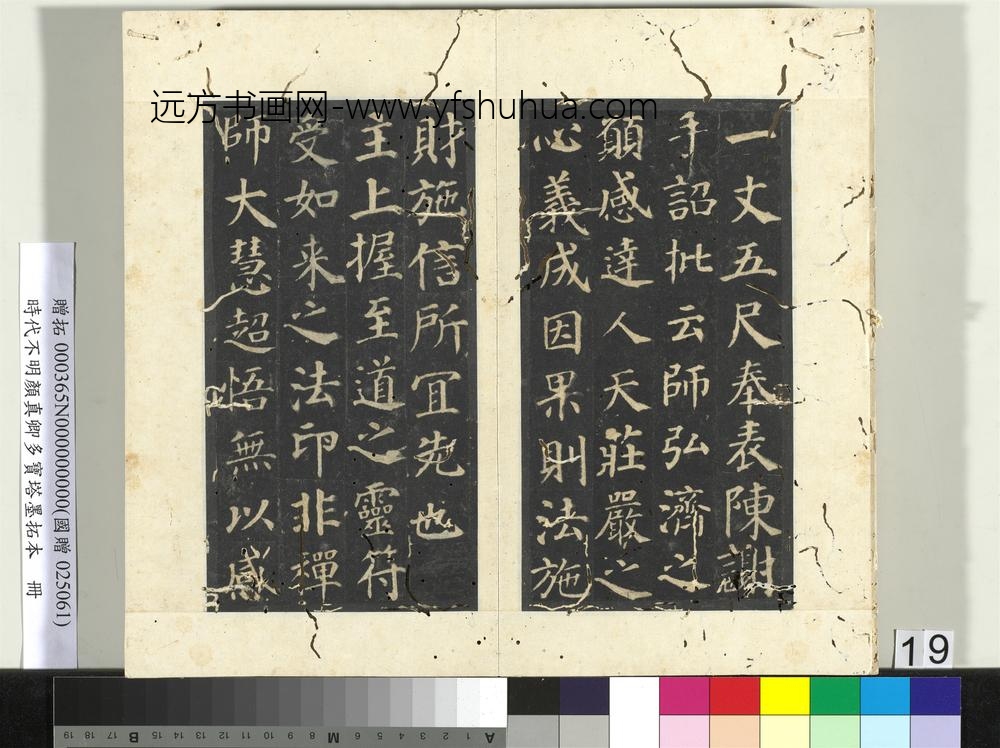 远方书画网-www.yfshuhua.com
一丈五尺奉表陳謝
手詔批云師弘濟之
願感達人天莊嚴之
心義成因果則法施
財施信所宜先也
主上握至道之靈符
受如来之法印非禪
師大慧超悟無以感
贈拓 000365N000000000(國贈 025061)
時代不明顏真卿多寶塔墨拓本 冊
19
A 1 2 3 4 5 6 7 8 M 9 10 11 12 13 14 15 B 16 17 18 19